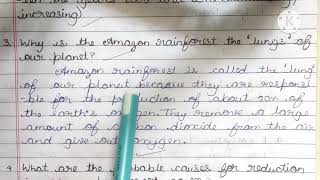 increasing)
3. Why is the Amazon rainforest the 'lungs' of
our planet?
Amazon rainforest is called the 'lung'
of our planet because they are responsi
-ble for the production of about 20% of
the earth's oxygen. They remove a large
amount of carbon dioxide from the air
and give out oxygen.
4. What are the probable causes for reduction